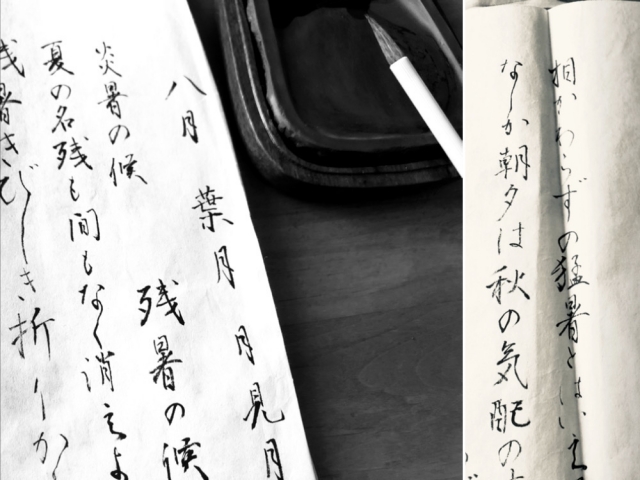 八月 葉月 月見月
炎暑の候 残暑の候
夏の名残も間もなく消えよ
残暑きびしき折りか
相かわらずの猛暑とはいえ
なしか朝夕は秋の気配の